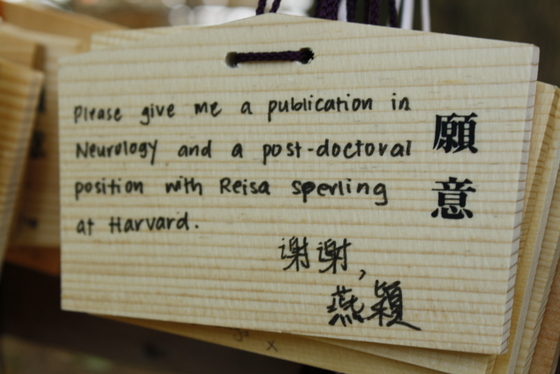 Please give me a publication in
Neurology and a post-doctoral
position with Reisa Sperling
at Harvard.
谢谢,
燕颖
願意